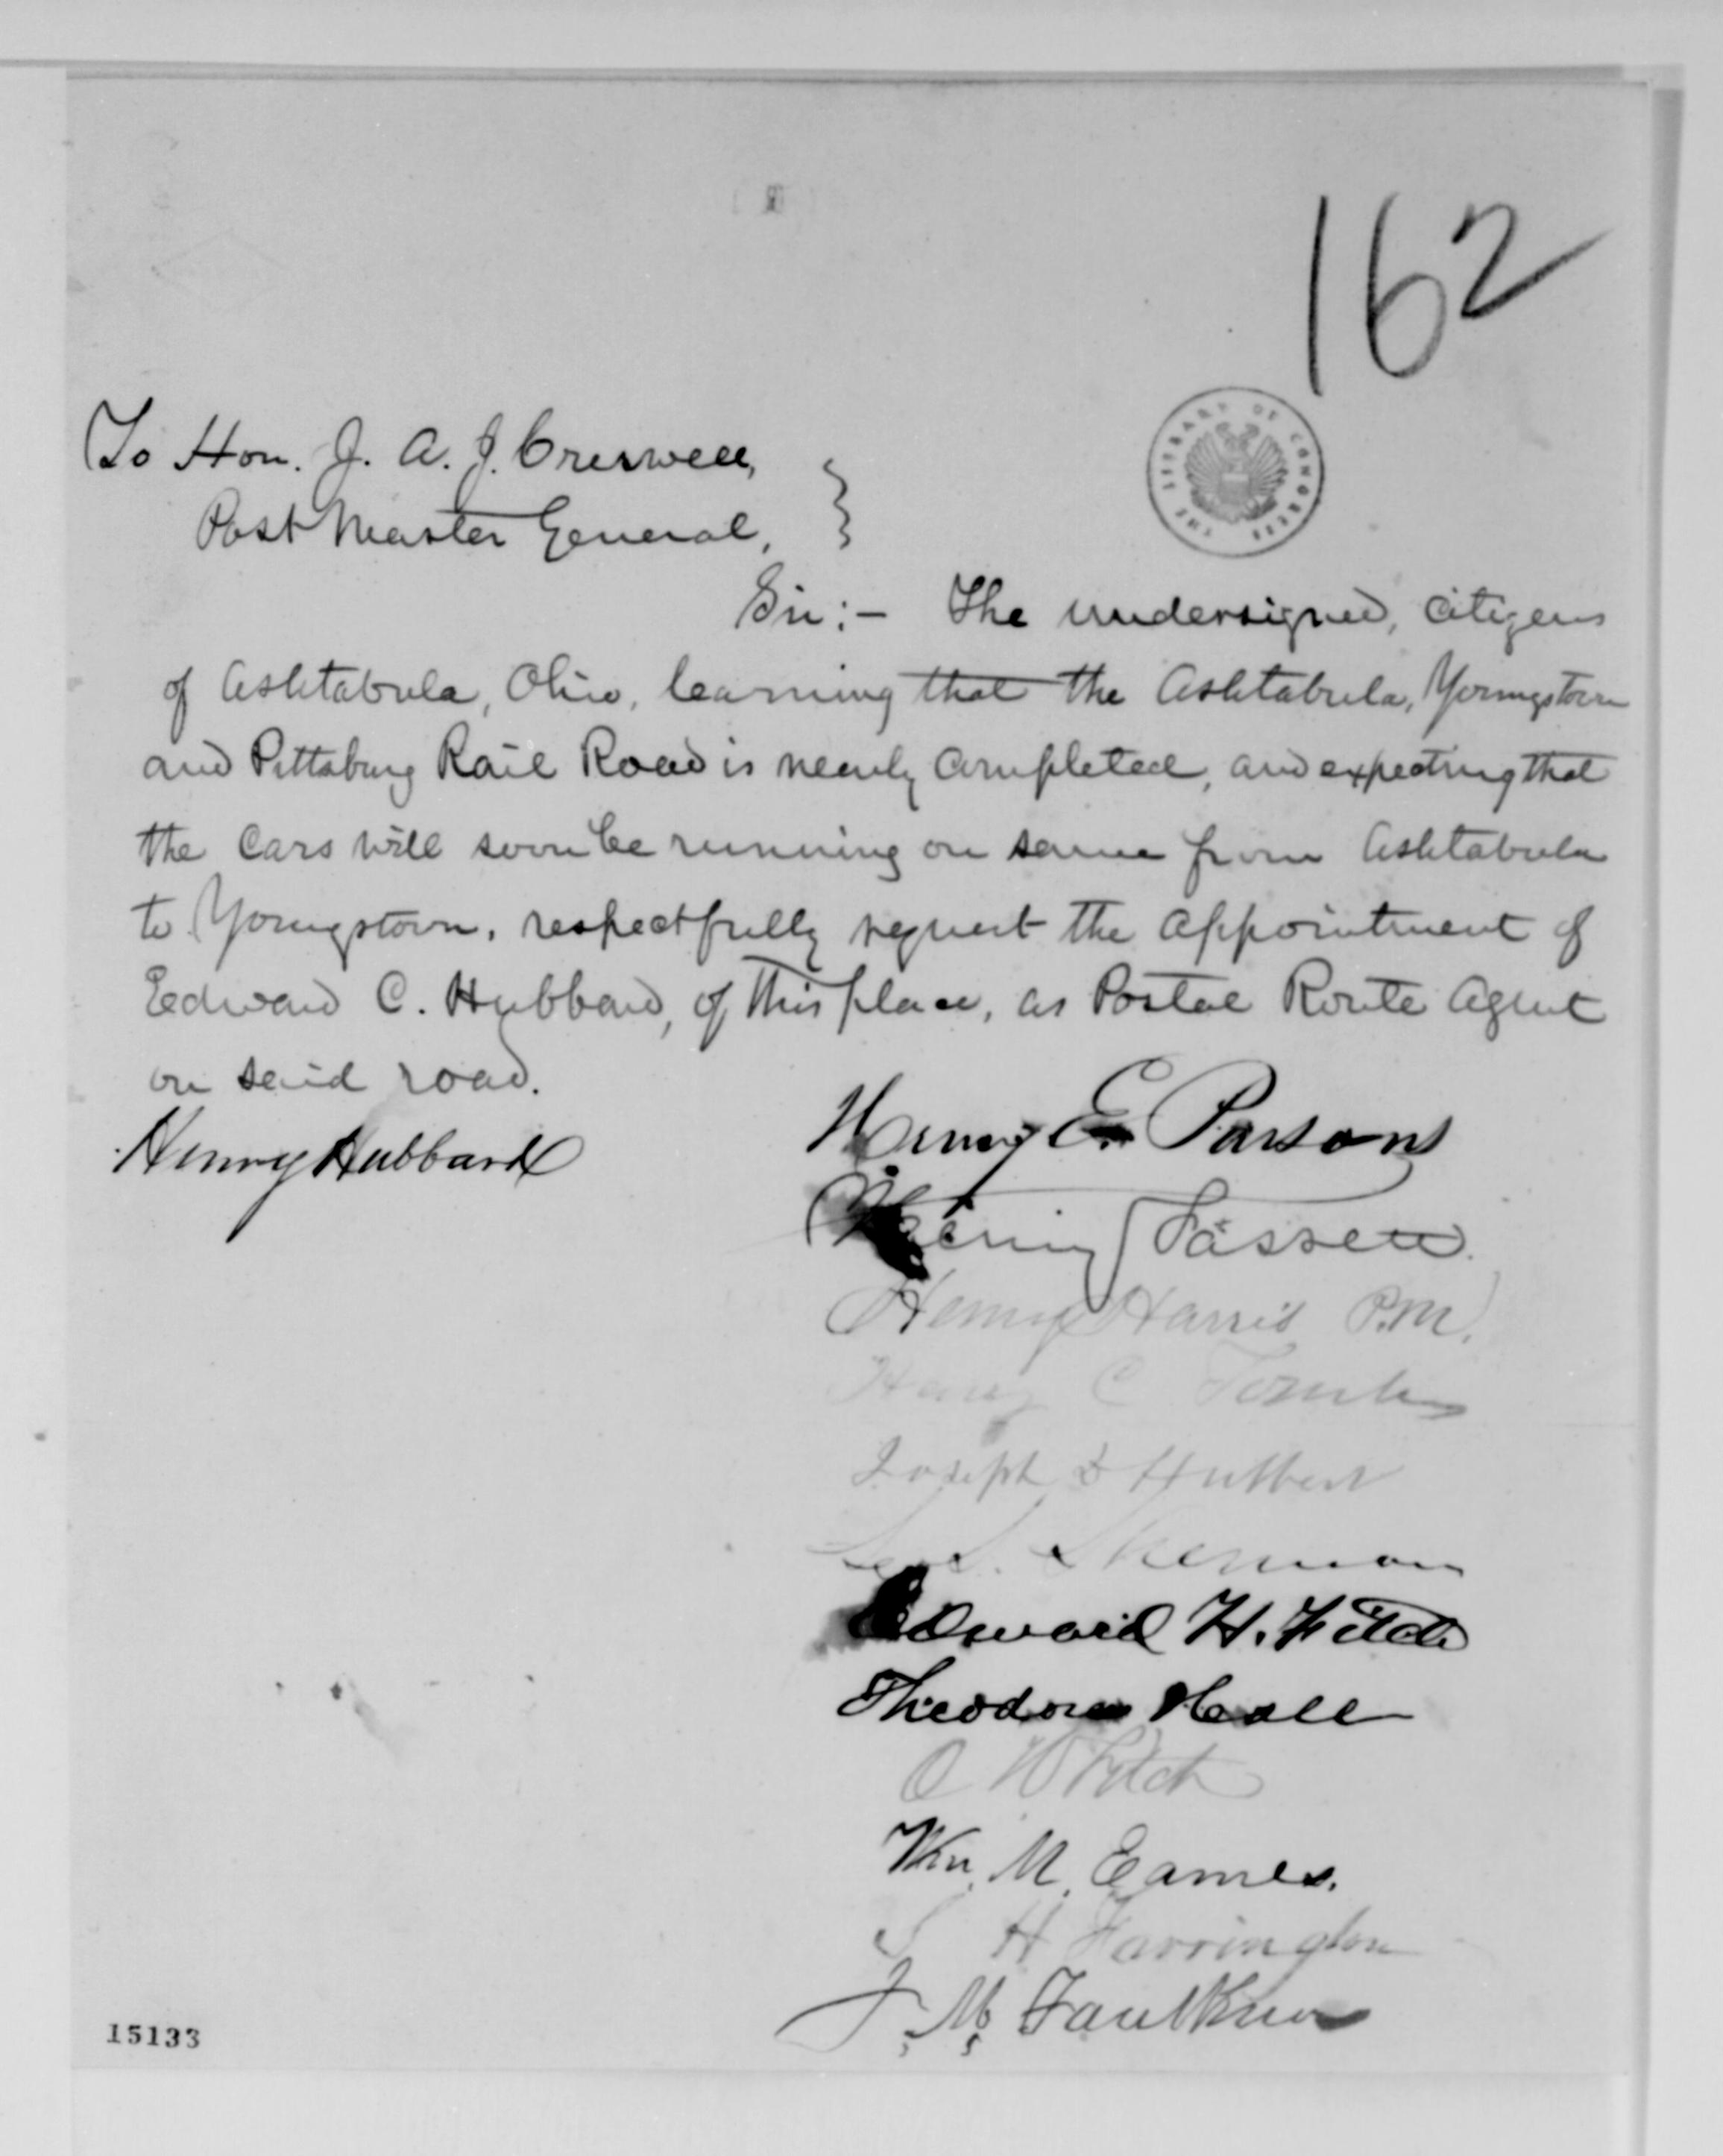 162
To Hon. J. A. J. Creswell,
Post Master General,
THE LIBRARY OF CONGRESS
Sir:- The undersigned, citizens
of Ashtabula, Ohio, learning that the Ashtabula, Youngstown
and Pittsburg Rail Road is nearly completed, and expecting that
the Cars will soon be running on same from Ashtabula
to Youngstown, respectfully request the appointment of
Edward C. Hubbard, of this place, as Postal Route Agent
on said road.
Henry Hubbard
Henry E. Parsons
Henry Fassett
Henry Harris P.M.
Henry C.
Joseph D Hulbert
Sherman
Edward H. Fitch
Theodore Hall
O H Fitch
Wm. M. Eames.
S H Farrington
J. M. Faulkner
15133